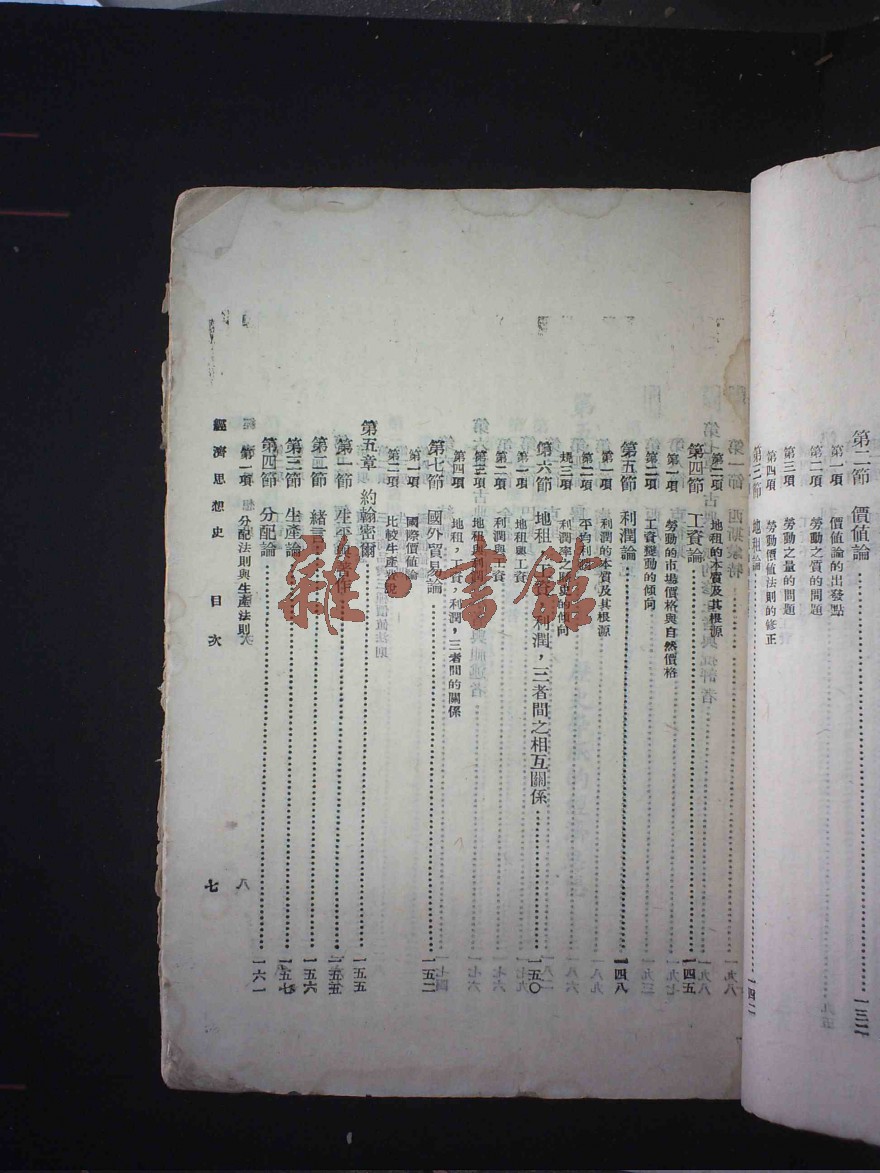 第二節 價値論 一三二
第一項 價値論的出發點
第二項 勞動之質的問題
第三項 勞動之量的問題
第四項 勞動價値法則的修正
第三節 地租論 一四二
第一項 地租的本質及其根源
第四節 工資論 一四五
第一項 勞動的市場價格與自然價格
第二項 工資變動的傾向
第五節 利潤論 一四八
第一項 利潤的本質及其根源
第二項 平均利潤
第三項 利潤率之歷史的傾向
第六節 地租,工資,利潤,三者間之相互關係 一五〇
第一項 地租與工資
第二項 利潤與工資
第三項 地租與利潤
第四項 地租,工資,利潤,三者間的關係
第七節 國外貿易論 一五二
第一項 國際價値論
第二項 比較生產費說
第五章 約翰密爾 一五五
第一節 生平與著作 一五五
第二節 緒言 一五六
第三節 生產論 一五七
第四節 分配論 一六一
第一項 分配法則與生產法則
經濟思想史 目次 七
雜·書館